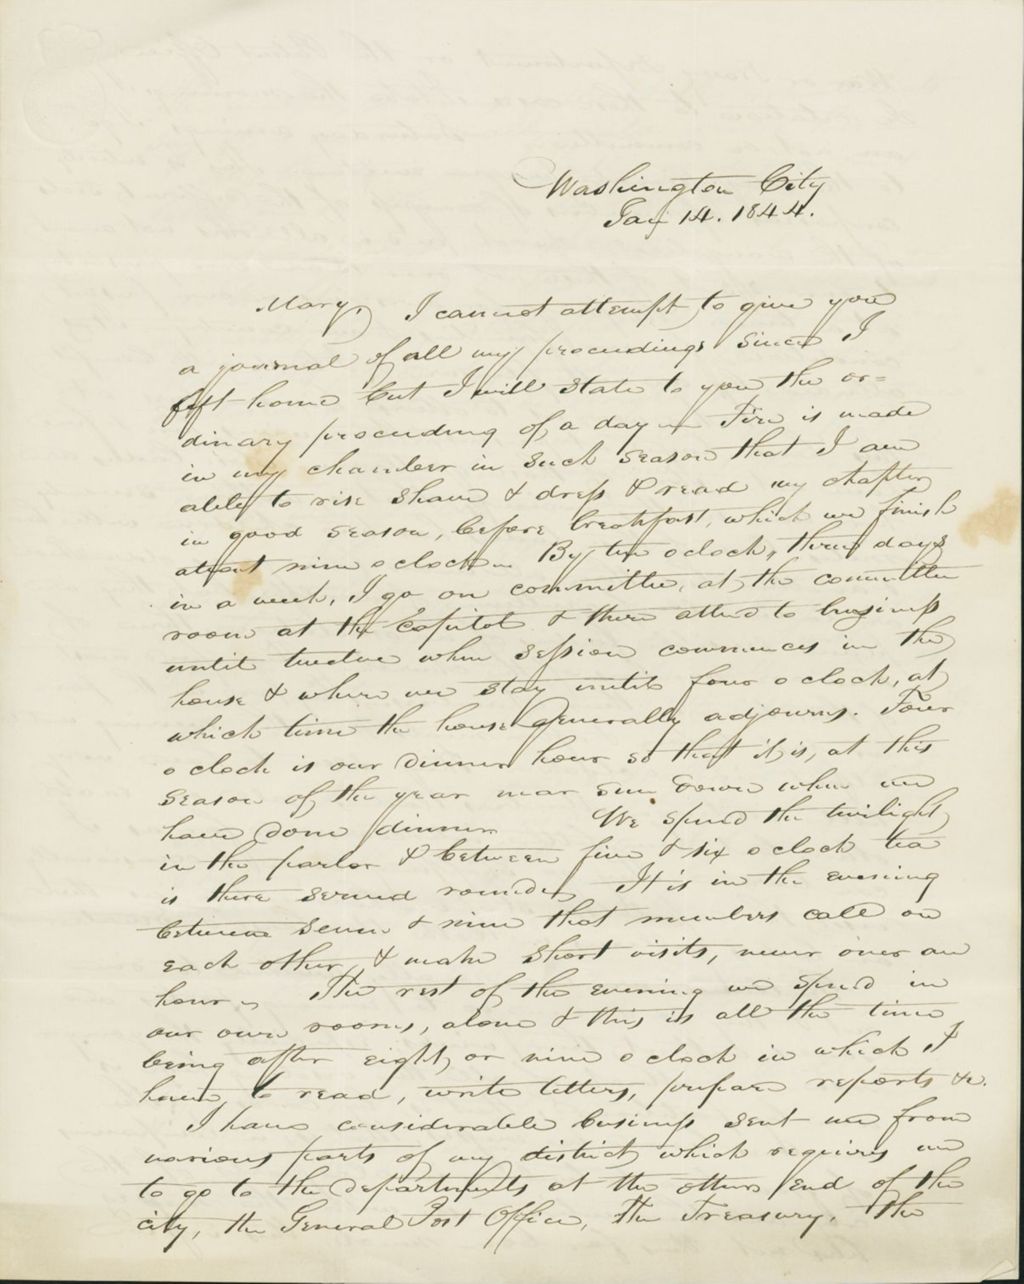 Washington City
Jany 14. 1844.
Mary, I cannot attempt to give you
a journal of all my proceedings since I
left home but I will state to you the or=
dinary proceeding of a day — Fire is made
in my chamber in such season that I am
able to rise shave & dress & read my chapter
in good season, before breakfast, which we finish
about nine o clock — By ten o clock, three days
in a week, I go on committee, at the committee
room at the Capitol & there attend to business
until twelve when session commences in the
house & where we stay until four o clock, at
which time the house generally adjourns. Four
o clock is our dinner hour so that it is, at this
season of the year near sun down when we
have done dinner We spend the twilight
in the parlor & between five & six o clock tea
is there served round. It is in the evening
between seven & nine that members call on
each other, & make short visits, never over an
hour — The rest of the evening we spend in
our own rooms, alone & this is all the time
being after eight or nine o clock in which I
have to read, write letters, prepare reports &c.
I have considerable business sent me from
various parts of my district which requires me
to go to the departments at the other end of the
city, the General Post Office, the Treasury, the